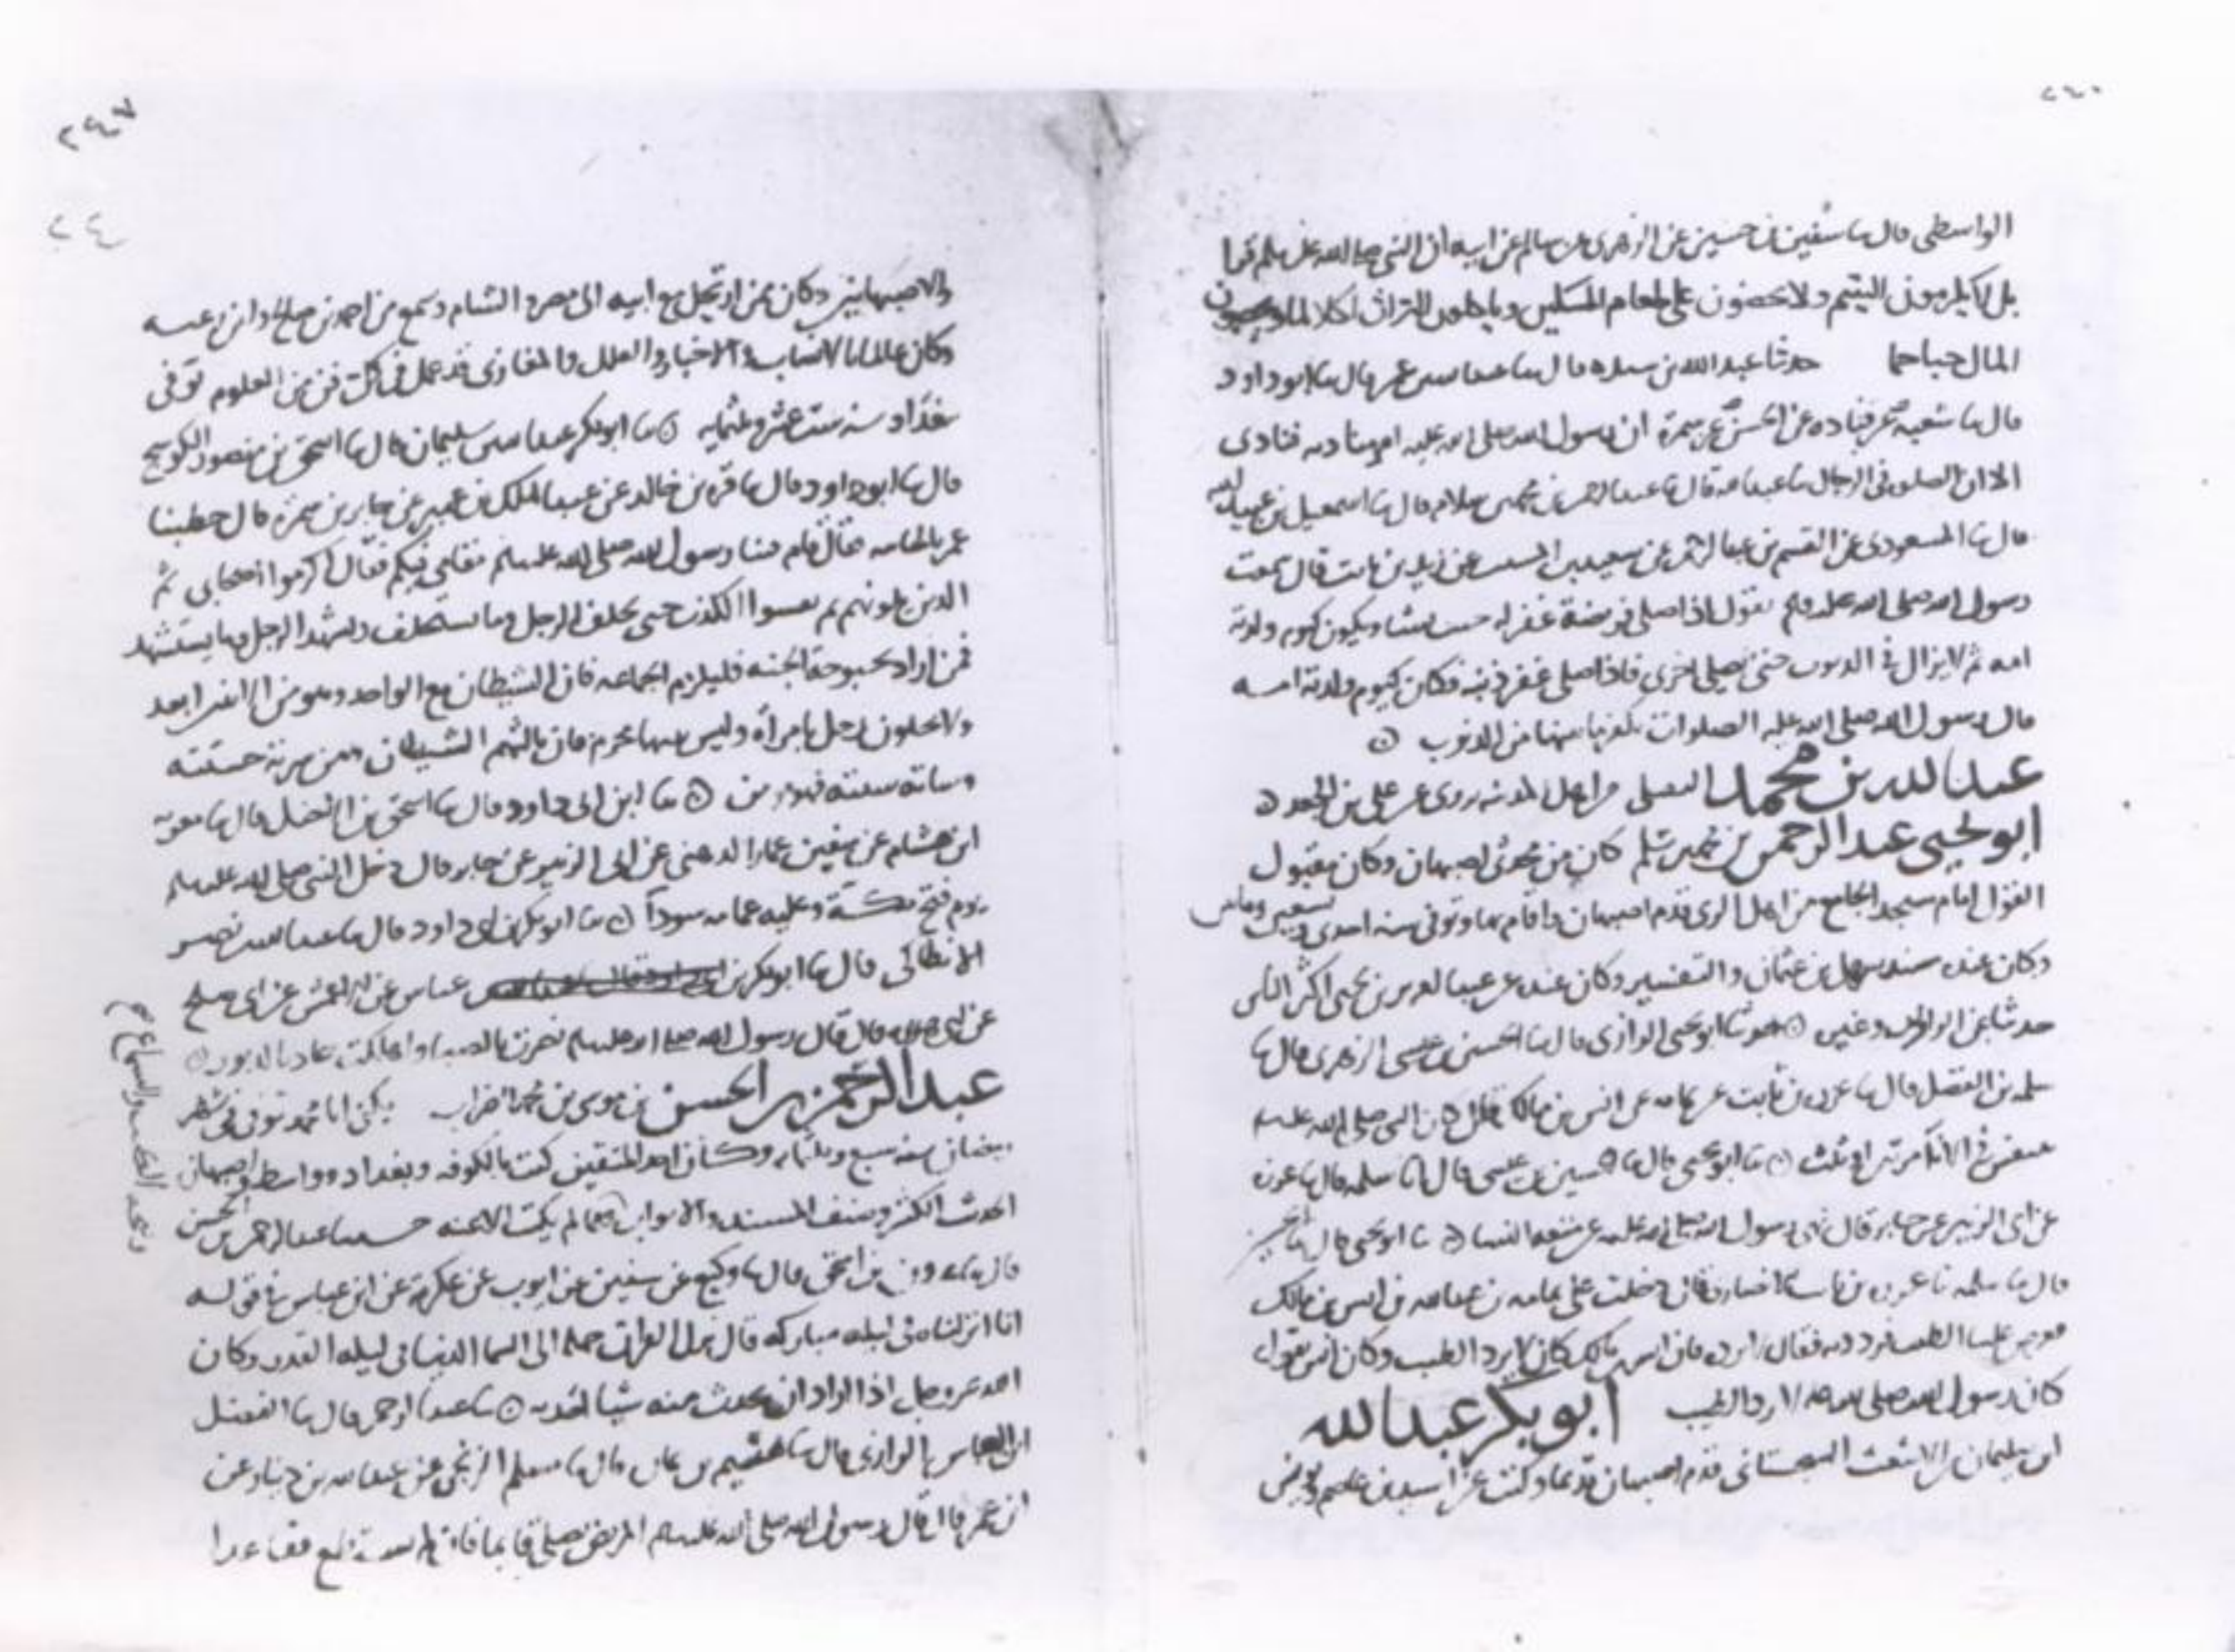 الواسطي قال ثنا سفين بن حسين عن الزهري عن سالم عن ابيه ان النبي صلى الله عليه وسلم قرا
بل لا يكرمون اليتيم ولا يحضون على طعام المسكين وياكلون التراث اكلا لما ويحبون
المال حبا جما حدثنا عبد الله بن قال ثنا قال ثنا ابو داود
قال ثنا شعبة عن قتاده عن الحسن عن سمرة ان رسول الله صلى الله عليه امر مناديه فنادى
الا ان الصلوه في الرحال ثنا عبد الله قال ثنا عبد الرحمن بن محمد بن سلام قال ثنا اسمعيل بن
قال ثنا المسعودي عن القسم بن عبد الرحمن عن سعيد بن المسيب عن زيد بن ثابت قال سمعت
رسول الله صلى الله عليه وسلم يقول اذا صلى فريضة غفر له ويكون كيوم ولدته
امه ثم لا يزال في الذنوب حتى يصلي اخرى فاذا صلى غفر ذنبه فكان كيوم ولدته امه
قال رسول الله صلى الله عليه الصلوات تكفر ما بينها من الذنوب
عبد الله بن محمد من اهل المدينه روى عن علي بن الجعد
ابو يحيى عبد الرحمن بن محمد بن سلم كان من محدثي اصبهان وكان مقبول
القول امام مسجد الجامع من اهل الري قدم اصبهان واقام بها وتوفي سنه احدى وتسعين ومايتين
وكان عنده مسند سهل بن عثمان والتفسير وكان عنده عن عبد العزيز بن يحيى اكثر الناس
حدثنا عن وغيره حدثنا ابو يحيى الرازي قال ثنا الحسين بن عيسى الزهري قال ثنا
سلمه بن الفضل قال ثنا عزره بن ثابت عن ثمامه عن انس بن مالك قال كان النبي صلى الله عليه
يتنفس في الانا مرتين او ثلث ثنا ابو يحيى قال ثنا الحسين بن عيسى قال ثنا سلمه قال ثنا عزره
عن ابي الزبير عن جابر قال نهى رسول الله صلى الله عليه عن متعه النسا ثنا ابو يحيى قال ثنا
قال ثنا سلمه ثنا عزره بن ثابت قال دخلت على ثمامه بن عبد الله بن انس بن مالك
فعرض علينا الطيب فقال فان انس بن مالك كان لا يرد الطيب وكان انس يقول
كان رسول الله صلى الله عليه لا يرد الطيب ابو بكر عبد الله
ابن سليمان بن الاشعث السجستاني قدم اصبهان قديما وكتب عن اسيد بن عاصم ويونس
والاصبهانيين وكان ممن ارتحل مع ابيه الى مصر والشام وسمع من احمد بن صالح
وكان عالما بالانساب والاخبار والعلل والمغازي قد عمل في كل فن من العلوم توفي
ببغداد سنه ست عشر وثلثمايه ثنا ابو بكر عبد الله بن سليمان قال ثنا اسحق بن منصور الكوسج
قال ثنا ابو داود قال ثنا قره بن خالد عن عبد الملك بن عمير عن جابر بن سمره قال خطبنا
عمر بالجابيه فقال قام فينا رسول الله صلى الله عليه وسلم مقامي فيكم فقال اكرموا اصحابي ثم
الذين يلونهم ثم يفشوا الكذب حتى يحلف الرجل وما يستحلف ويشهد الرجل وما يستشهد
فمن اراد بحبوحة الجنه فليلزم الجماعه فان الشيطان مع الواحد وهو من الاثنين ابعد
ولا يخلون رجل بامراة وليس بينها محرم فان ثالثهم الشيطان ومن سرته حسنته
وساته سيئته فهو مومن ثنا ابن ابي داود قال ثنا اسحق بن الفضل قال ثنا معويه
ابن هشام عن سفين عن عمار الدهني عن ابي الزبير عن جابر قال دخل النبي صلى الله عليه وسلم
يوم فتح مكة وعليه عمامه سودا ثنا ابو بكر بن ابي داود قال ثنا عبد الله بن نصر
الانطاكي قال ثنا ابو بكر بن عياش عن الاعمش عن ابي صالح
عن ابي هريره قال قال رسول الله صلى الله عليه وسلم نصرت بالصبا واهلكت عاد بالدبور
عبد الرحمن بن الحسن بن موسى بن محمد الضراب يكنى ابا محمد توفي في شهر
رمضان سنه سبع وثلثمايه وكان احد المتقنين كتب بالكوفه وبغداد وواسط واصبهان
الحديث الكثير وصنف المسند والابواب لم يكتب الا عنه حدثنا عبد الرحمن بن الحسن
قال ثنا هرون بن اسحق قال ثنا وكيع عن سفين عن ايوب عن عكرمة عن ابن عباس في قوله
انا انزلناه في ليله مباركه قال نزل القران جمله الى السما الدنيا في ليله القدر وكان
الله عز وجل اذا اراد ان يحدث منه شيا احدثه ثنا عبد الرحمن قال ثنا الفضل
ابن العباس الرازي قال ثنا قال ثنا مسلم الزنجي عن عبد الله بن دينار عن
ابن عمر قال قال رسول الله صلى الله عليه وسلم المريض يصلي قايما فان لم يستطع فقاعدا